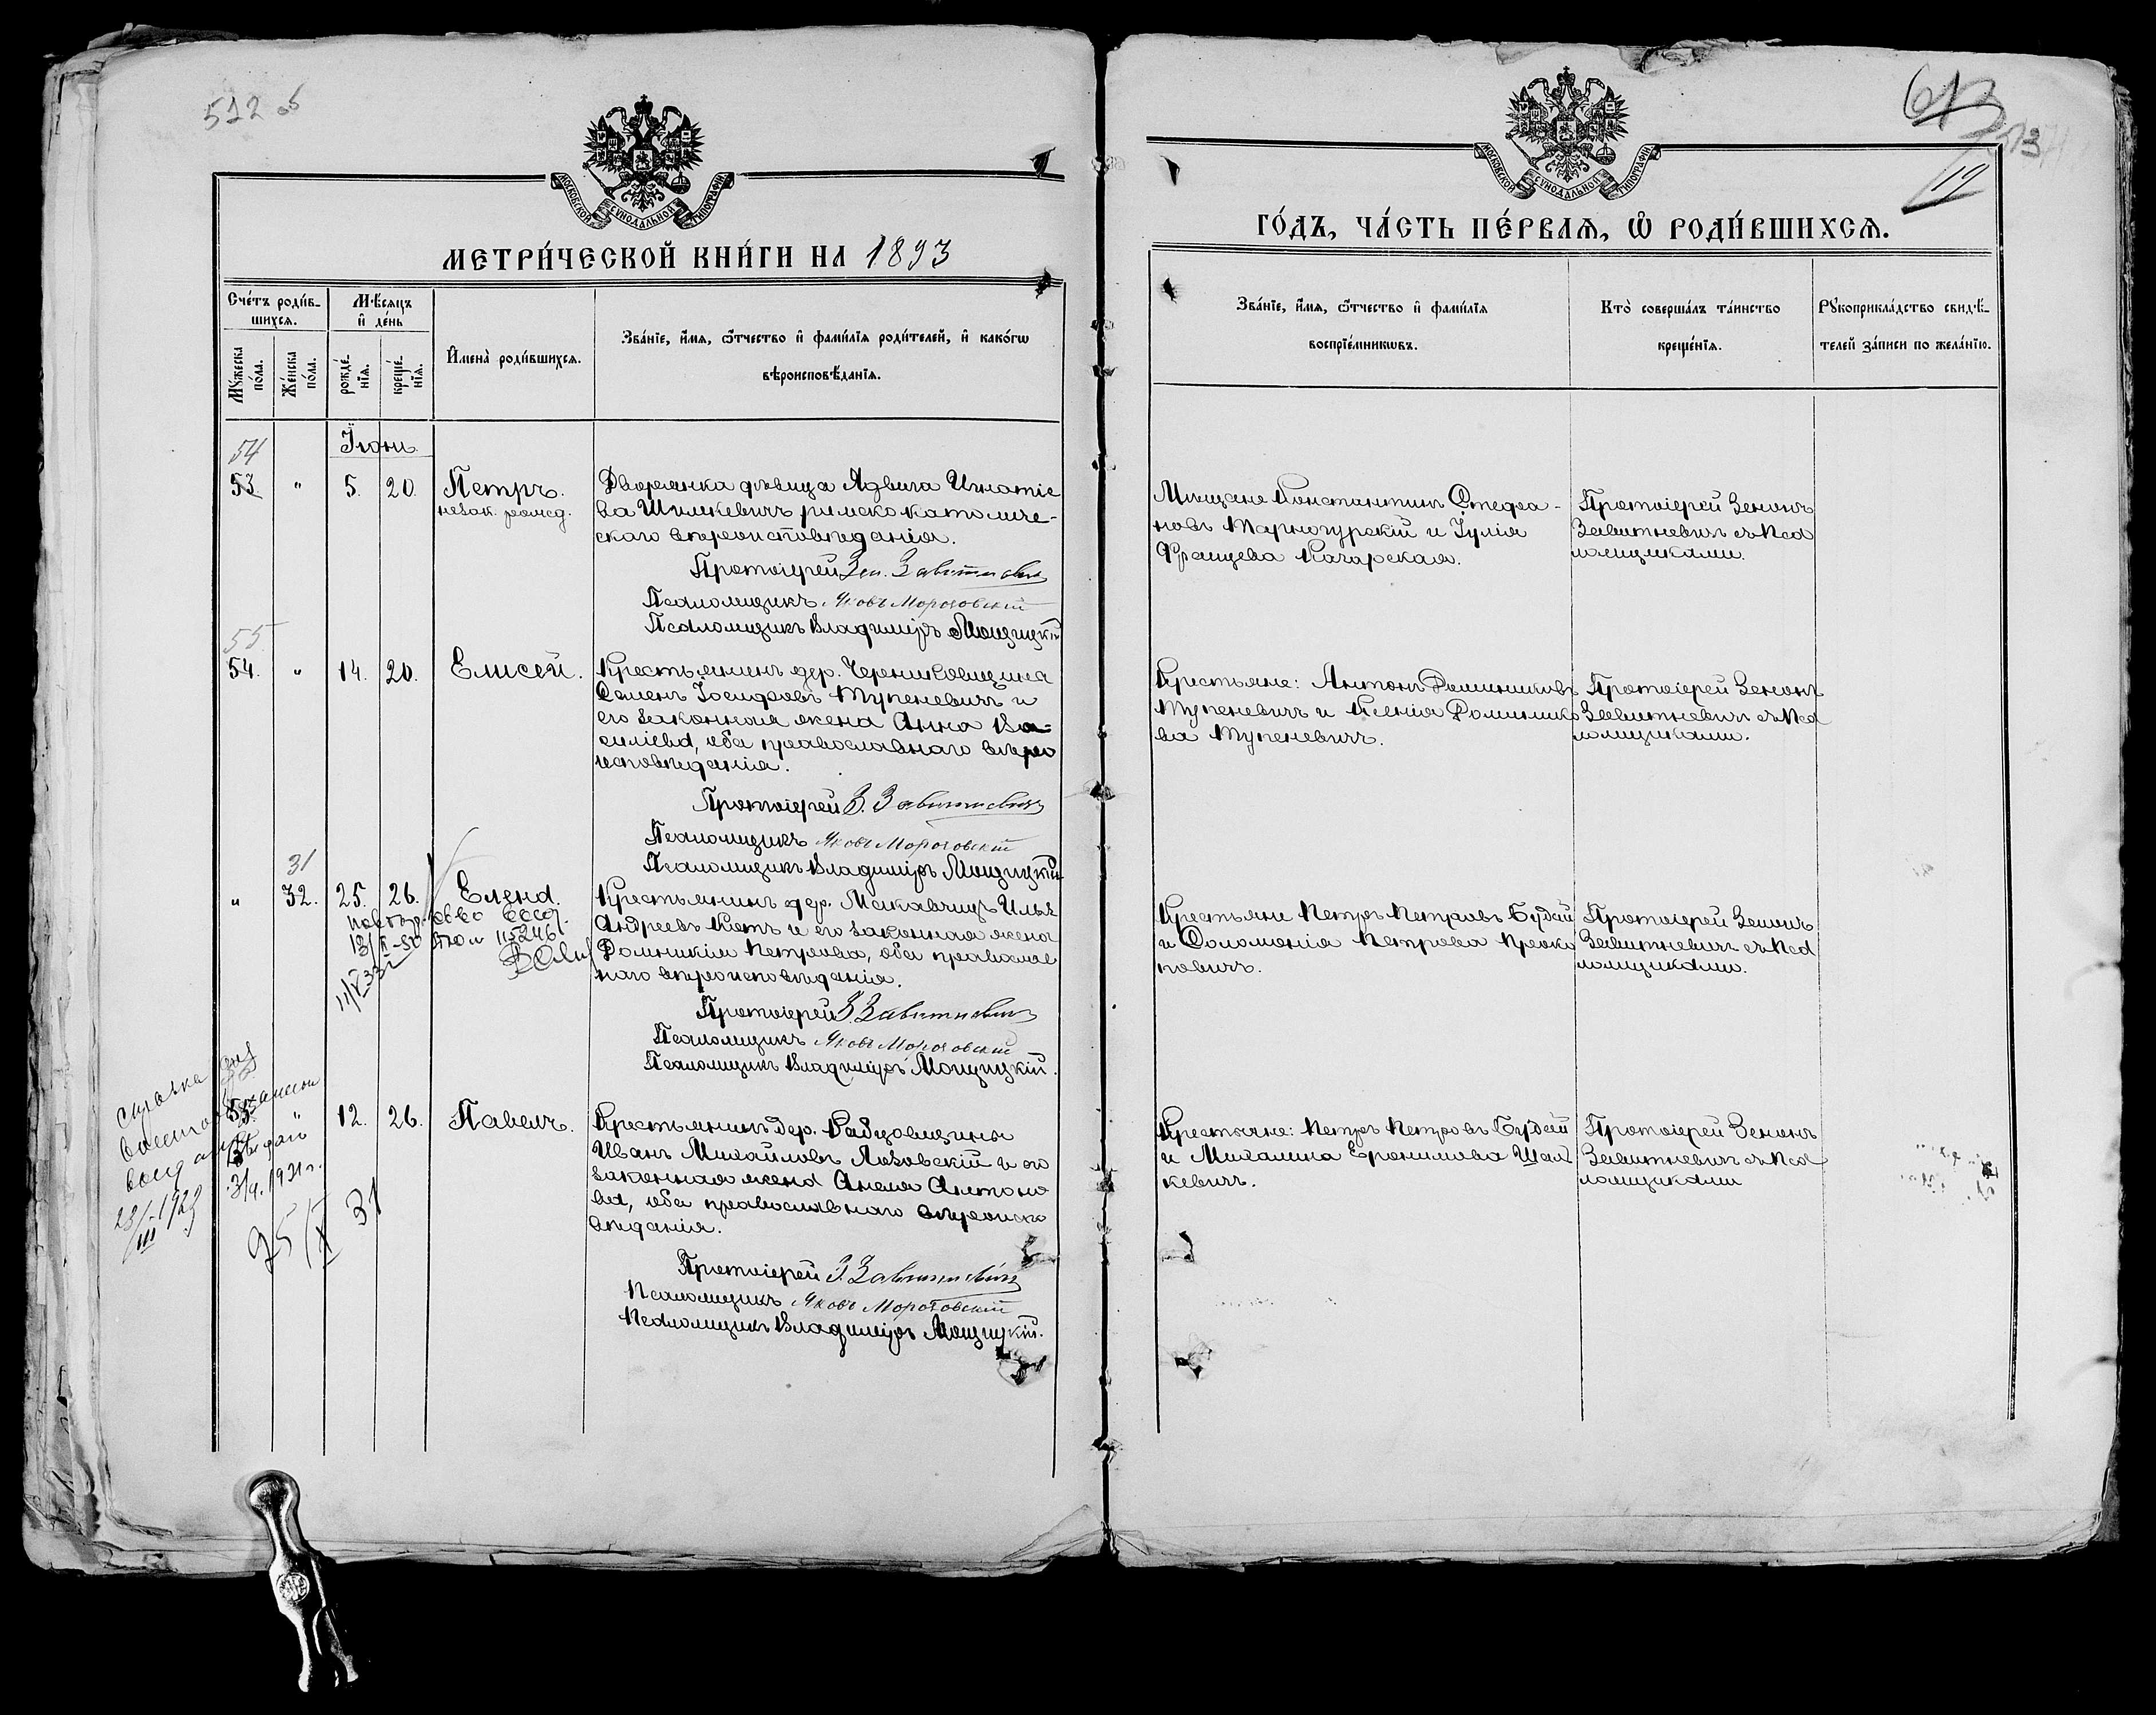 512 об
МОСКОВСКОЙ СѴНОДАЛЬНОЙ ТИПОГРАФІИ
МЕТРИ́ЧЕСКОЙ КНИ́ГИ НА 1893
Сче́тъ роди́в-
шихся.
Мѣ́сяцъ
и҆ де́нь
Мꙋ́жеска
по́ла.
Же́нска
по́ла.
рожде́-
нїя.
креще́-
нїя.
И҆мена̀ роди́вшихся.
Зва́нїе, и҆́мя, ѻ҆́тчество и҆ фами́лїя роди́телей, и҆ како́гѡ
вѣроисповѣ́данїя.
Іюнь
54
53 " 5. 20. Петръ.
незак. рожд.
Дворянка дѣвица Ядвига Игнатіе
ва Шимкевичъ римско католиче-
скаго вѣроисповѣданія.
Протоіерей Зен. Завитневичъ
Псаломщикъ Яковъ Мороговскій
Псаломщикъ Владиміръ Мощицкій
55
54. " 14. 20. Елисей.
Крестьянинъ дер. Черниковщина
Семенъ Іосифовъ Тупеневичъ и
его законная жена Анна Ва-
силіева, оба православнаго вѣро
исповѣданія.
Протоіерей З. Завитневичъ
Псаломщикъ Яковъ Мороговскій
Псаломщикъ Владиміръ Мощицкій
31
" 32. 25. 26. Елена.
11/V 33
Крестьянинъ дер. Макавчицъ Илья
Андреевъ Котъ и его законная жена
Домникія Петрова, оба православ
наго вѣроисповѣданія.
Протоіерей З. Завитневичъ
Псаломщикъ Яковъ Мороговскій
Псаломщикъ Владиміръ Мощицкій.
справка
55. " 12. 26. Павелъ.
3/4. 1931 г.
Крестьянинъ дер. Рабцовщины
Иванъ Михайловъ Лозовскій и его
законная жена Анеля Антоно
ва, оба православнаго вѣроиспо
вѣданія.
Протоіерей З. Завитневичъ
Псаломщикъ Яковъ Мороговскій
Псаломщикъ Владиміръ Мощицкій.
МОСКОВСКОЙ СѴНОДАЛЬНОЙ ТИПОГРАФІИ
ГО́ДЪ, ЧА́СТЬ ПЕ́РВАЯ, Ѡ҆ РОДИ́ВШИХСЯ.
Зва́нїе, и҆́мя, ѻ҆́тчество и҆ фами́лїя
воспрїе́мникѡвъ.
Кто̀ соверша́лъ та́инство
креще́нїя.
Рꙋкоприкла́дство свидѣ́-
телей за́писи по жела́нїю.
Мѣщане Константинъ Стефа-
новъ Тарногурскій и Іулія
Францева Качарская.
Протоіерей Зенонъ
Завитневичъ съ Пса
ломщиками.
Крестьяне: Антонъ Доминиковъ
Тупеневичъ и Ксенія Доминико
ва Тупеневичъ.
Протоіерей Зенонъ
Завитневичъ съ Пса
ломщиками.
Крестьяне Петръ Петровъ Будай
и Соломонія Петрова Проко
повичъ.
Протоіерей Зенонъ
Завитневичъ съ Пса
ломщиками.
Крестьяне: Петръ Петровъ Будай
и Михалина Еронимова Шат
кевичъ.
Протоіерей Зенонъ
Завитневичъ съ Пса
ломщиками